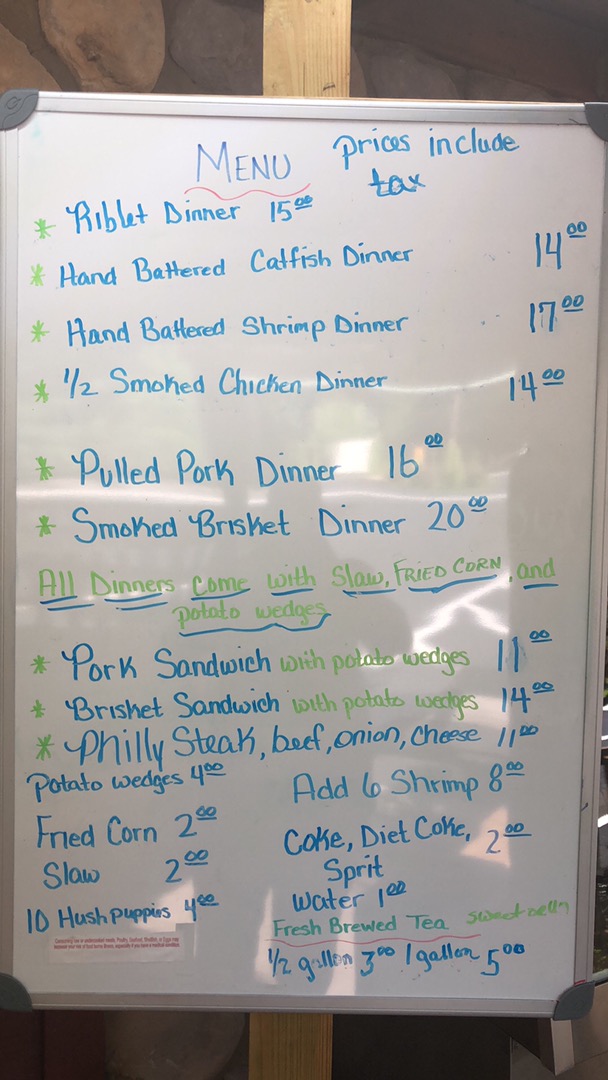 MENU prices include
tax
* Riblet Dinner 15.00
* Hand Battered Catfish Dinner 14.00
* Hand Battered Shrimp Dinner 17.00
* 1/2 Smoked Chicken Dinner 14.00
* Pulled Pork Dinner 16.00
* Smoked Brisket Dinner 20.00
All Dinners come with Slaw, FRIED CORN, and
potato wedges
* Pork Sandwich with potato wedges 11.00
* Brisket Sandwich with potato wedges 14.00
* Philly Steak, beef, onion, cheese 11.00
Potato wedges 4.00
Add 6 Shrimp 8.00
Fried Corn 2.00
Coke, Diet Coke, 2.00
Sprit
Slaw 2.00
Water 1.00
10 Hushpuppies 4.00
Fresh Brewed Tea
1/2 gallon 3.00 1 gallon 5.00